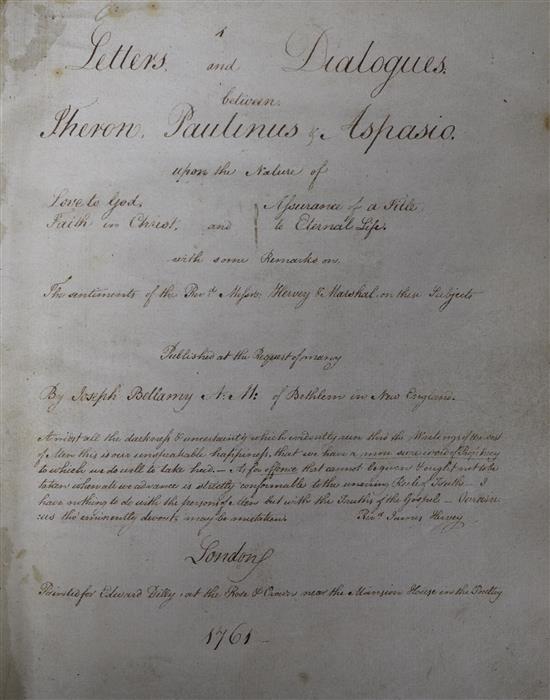 1
Letters and Dialogues.
between.
Theron, Paulinus & Aspasio.
upon the Nature of
Love to God. Assurance of a Title
Faith in Christ. and to Eternal Life.
with some Remarks on.
The sentiments of the Revd. Messrs. Hervey & Marshal, on these Subjects
Published at the Request of many
By Joseph Bellamy A: M: of Bethlem in New England.
Amidst all the darkness & uncertainty which evidently run thro the Writings of the best
of Men this is our unspeakable happiness, that we have a more sure word of Prophecy
to which we do well to take heed. — As for offence that cannot be given & ought not to be
taken when all we advance is strictly conformable to the unerring Rule of Truth — I
have nothing to do with the persons of Men but with the Truths of the Gospel —
us tho' eminently devout, may be mistaken. Revd. James Hervey
London
Printed for Edward Dilly, at the Rose & Crown near the Mansion House in the Poultry
1761 —